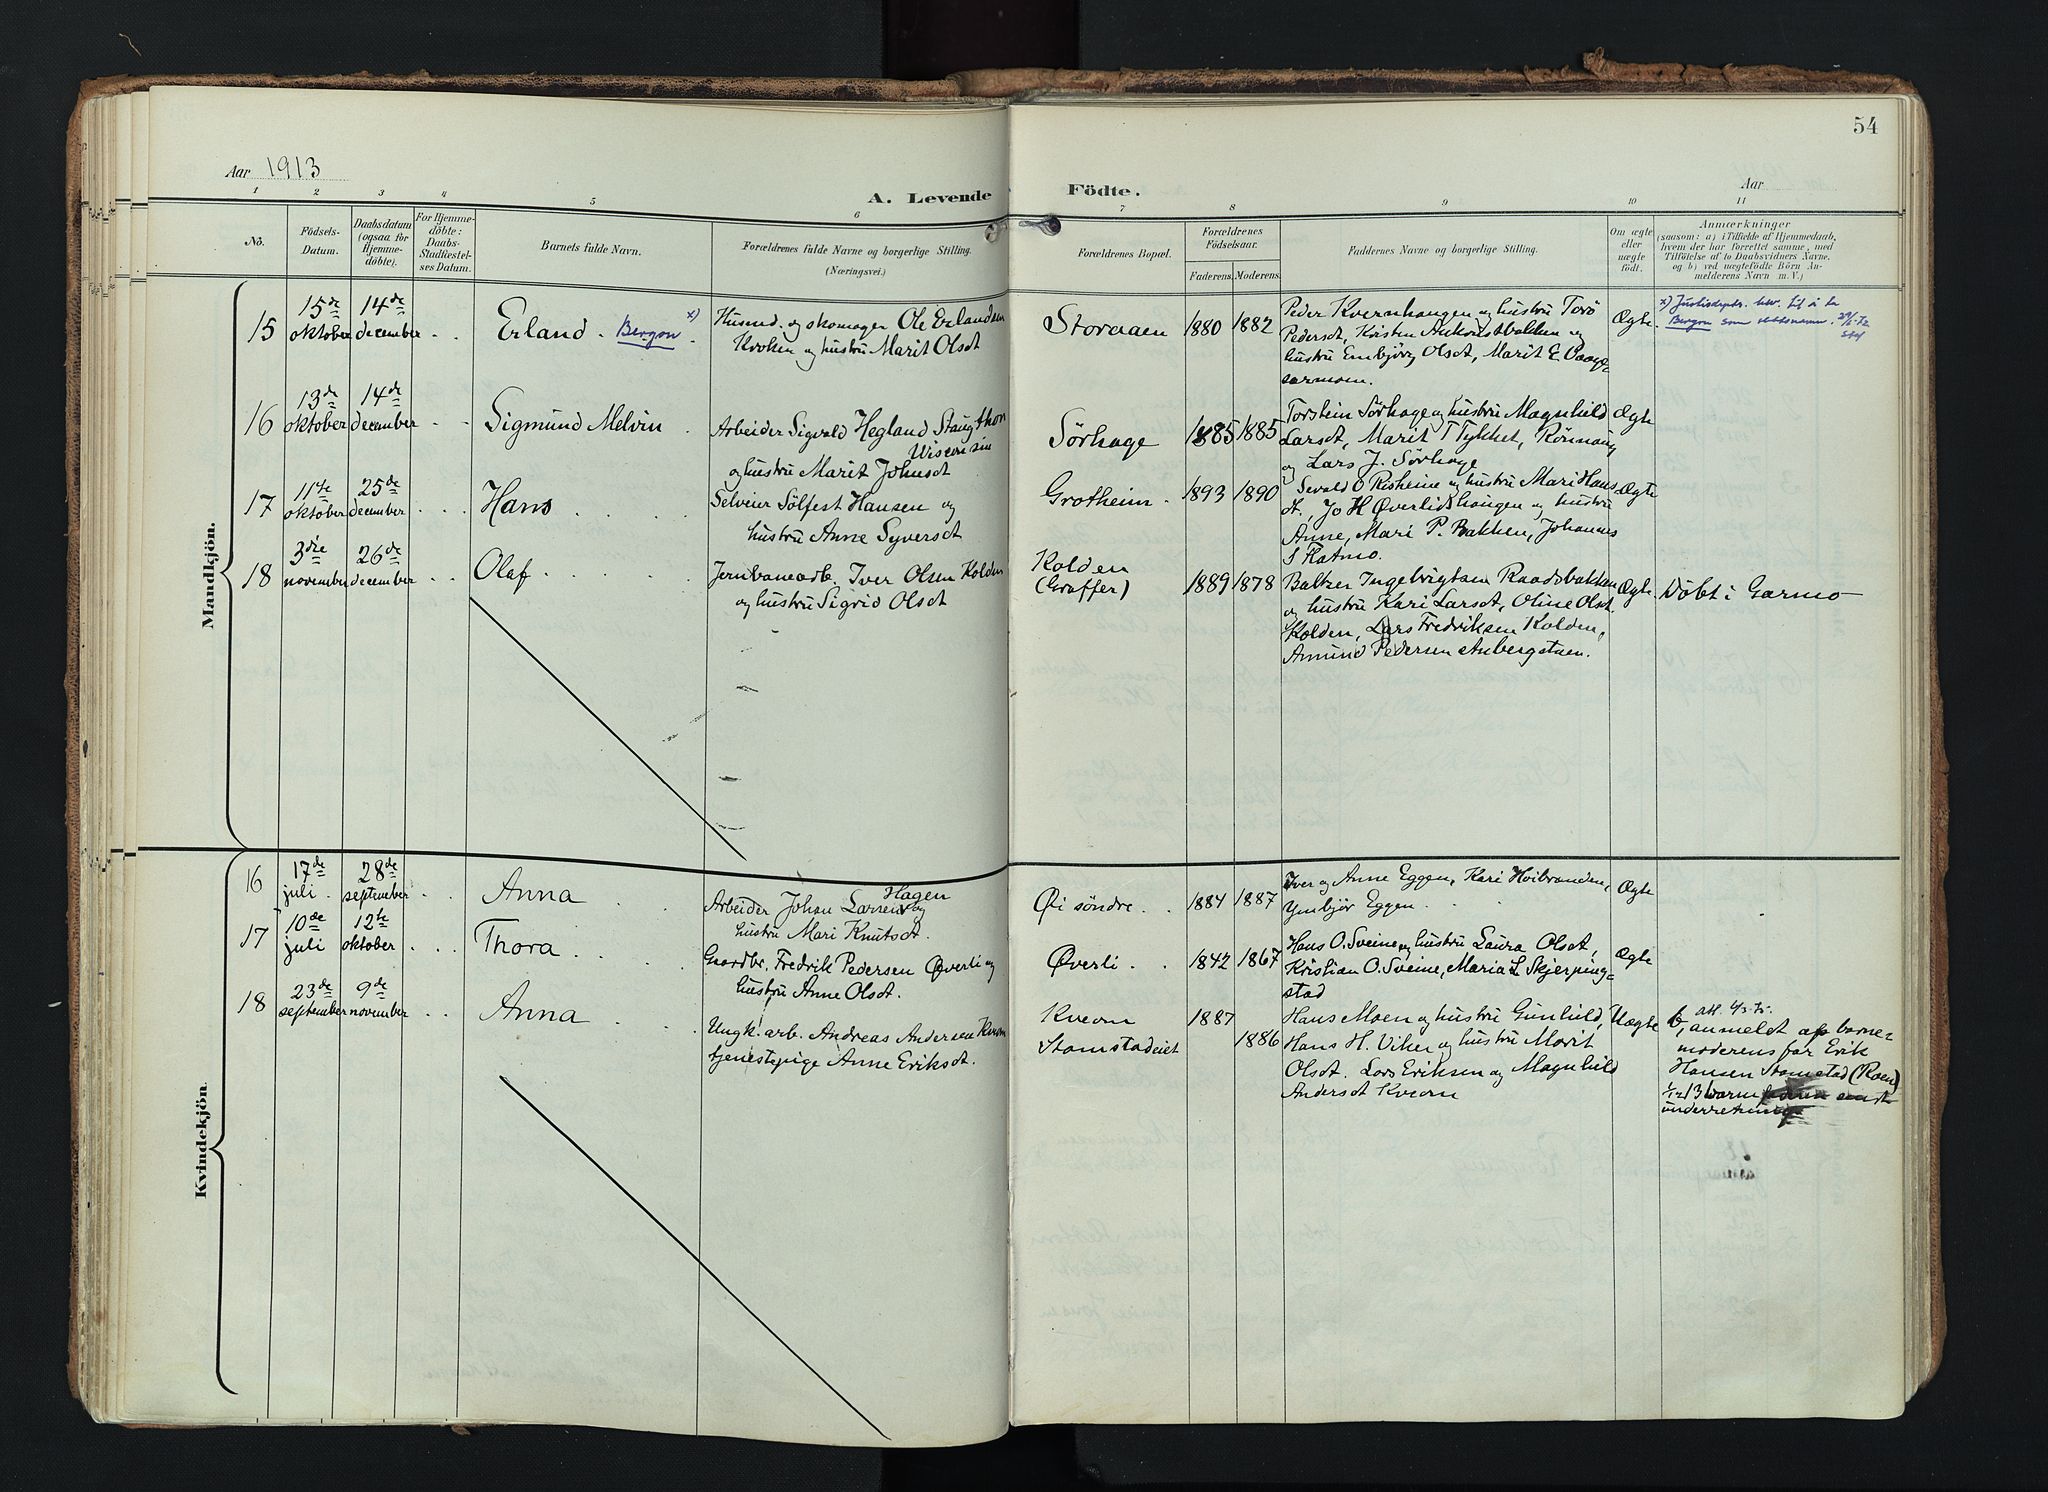 54
Aar 1913
Aar
A. Levende Födte.
1 2 3 4 5 6 7 8 9 10 11
No.
Födsels-Datum.
Daabsdatum (ogsaa for Hjemme-döbte).
For Hjemme-döbte: Daabs-Stadfæstel-ses Datum.
Barnets fulde Navn.
Forældrenes fulde Navne og borgerlige Stilling.
(Næringsvei.)
Forældrenes Bopæl.
Forældrenes Födselsaar.
Faderens. Moderens.
Faddernes Navne og borgerlige Stilling.
Om ægte eller uægte födt.
Anmærkninger
(saasom: a) i Tilfælde af Hjemmedaab,
hvem der har forrettet samme, med
Tilföielse af to Daabsvidners Navne.
og b) ved uægtefödte Börn An-
melderens Navn m. V.)
Mandkjön.
15
15de oktober
14de december
Erland. Bergom x)
Husmd. og skomager Ole Erlandsen
Kroken og hustru Marit Olsdt
Storaaen
1880 1882
Peder Kvernhaugen og hustru Torö
Pedersdt, Kristen
hustru Embjörg Olsdt, Marit E.
Ægte.
x) Justisdepts. bev. til å ta
som slektsnavn.
16
13de oktober
14de december
Sigmund Melvin
Arbeider Sigvald Hegland Staugthon
Wisconsin
og hustru Marit Johnsdt
Sörhage
1885 1885
Torstein Sörhage og hustru Magnhild
Larsdt, Marit T Tykket, Rönnaug
og Lars J. Sörhage
Ægte
17
11te oktober
25de december
Hans
Selveier Sölfest Hansen og
hustru Anne Syversdt
Grotheim
1893 1890
Sevald O Risheim og hustru Mari Hans
dt., Jo H Øverlidshaugen og hustru
Anne, Mari P. Bakken, Johannes
S Flatmo.
Ægte
18
3die november
26de december
Olaf
Jernbanearb. Iver Olsen Kolden
og hustru Sigrid Olsdt
Kolden
(Graffer)
1889 1878
Baltzer Ingebrigtsen Raadsbakken
og hustru Kari Larsdt, Oline Olsdt.
Kolden, Lars Fredriksen Kolden,
Amund Pedersen Aabergstuen.
Ægte.
Döbt i Garmo
Kvindekjön.
16
17de juli
28de september
Anna
Hagen
Arbeider Johan Larsen og
hustru Mari Knutsdt.
Øi söndre
1884 1887
Iver og Anne Eggen, Kari Hoibranden,
Ymbjör Eggen
Ægte
17
10de juli
12te oktober
Thora
Gaardbr. Fredrik Pedersen Øverli og
hustru Anne Olsdt.
Øverli
1842 1867
Hans O. Sveine og hustru Laura Olsdt,
Kristian O. Sveine, Maria L Skjerping=
stad
Ægte
18
23de september
9de november
Anna
Ungk. arb. Andreas Andersen Kvern
tjenestepige Anne Eriksdt.
Kvern
Stamstadeiet
1887
1886
Hans Moen og hustru Gunhild,
Hans H. Viken og hustru Marit
Olsdt. Lars Eriksen og Magnhild
Andersdt Kvern
Uægte
b, anmeldt af barne=
moderens far Erik
Hansen Stamstad (Roen)
1/12 13 barnefaderen sendt
underretning